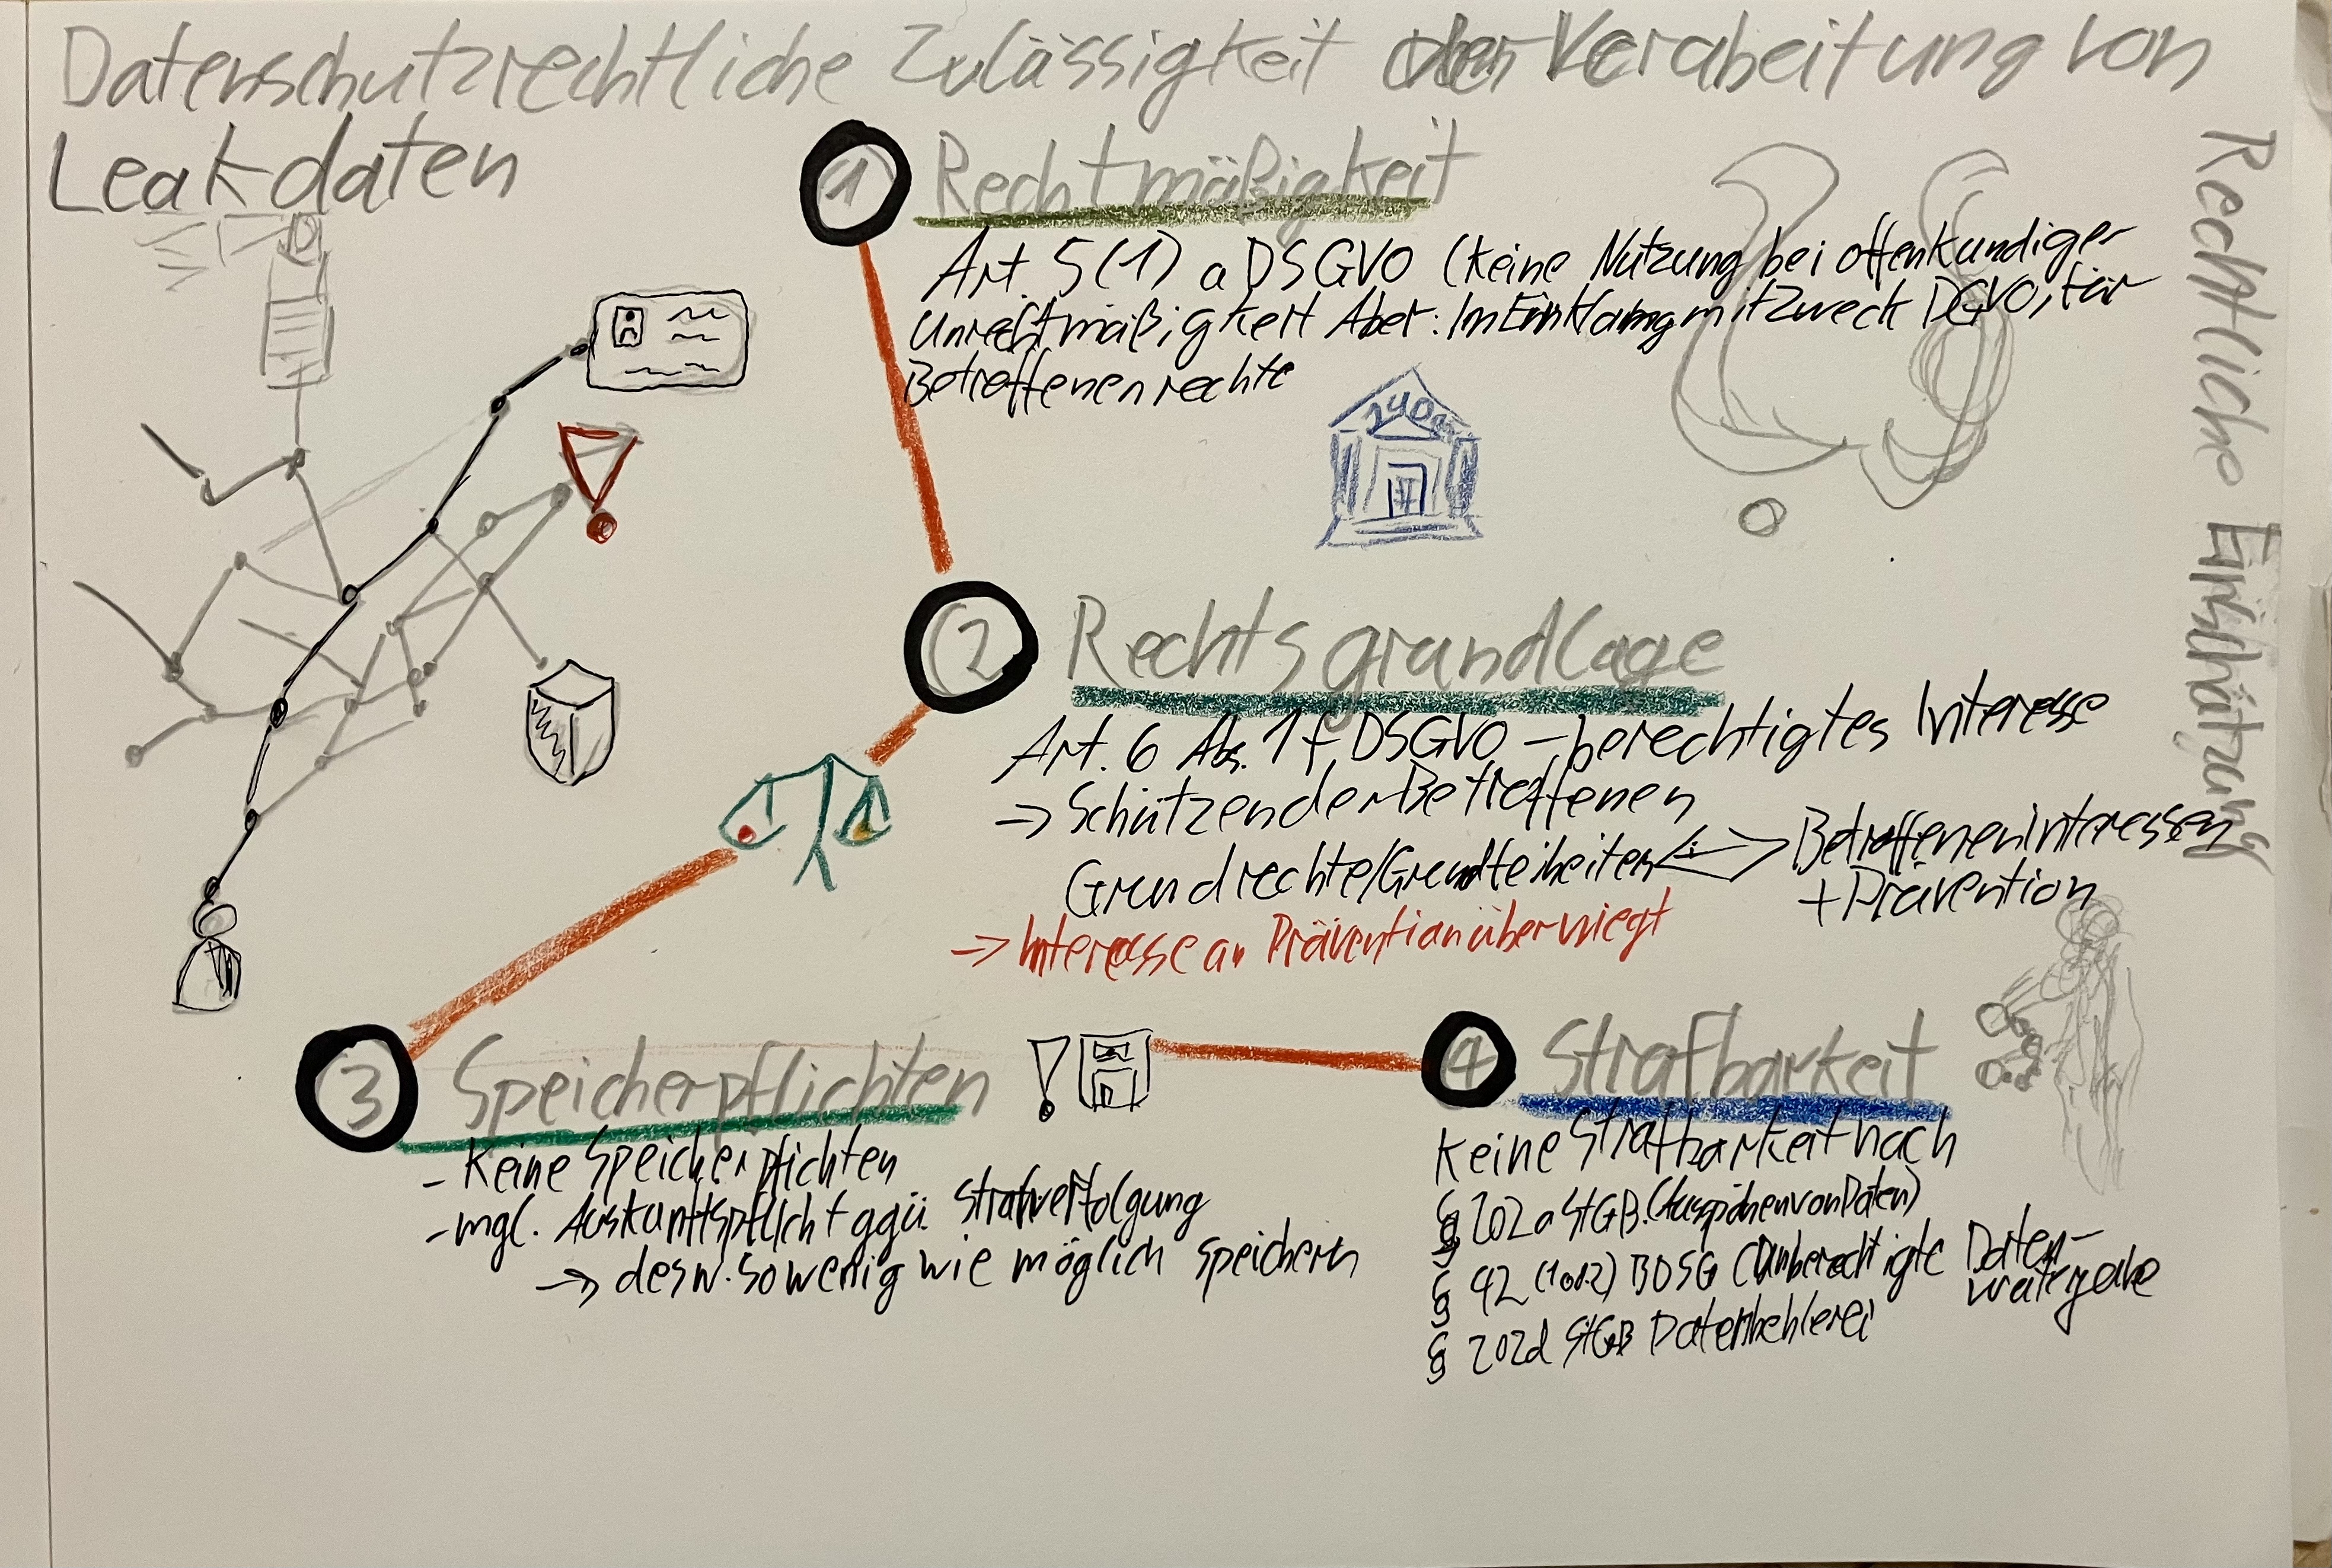 Datenschutzrechtliche Zulässigkeit der Verabeitung von
Leakdaten
Rechtliche Einschätzung
1 Rechtmäßigkeit
Art. 5(1) a DSGVO (keine Nutzung bei offenkundiger
Unrechtmäßigkeit Aber: Im Einklang mit Zweck DGVO, für
Betroffenenrechte
2 Rechtsgrundlage
Art. 6 Abs. 1 f DSGVO – berechtigtes Interesse
→ Schützen der Betroffenen
Grundrechte/Grundfreiheiten <-> Betroffeneninteressen
+ Prävention
→ Interesse an Prävention überwiegt
3 Speicherpflichten
- Keine Speicherpflichten
- mgl. Auskunftspflicht ggü. Strafverfolgung
→ desw. so wenig wie möglich speichern
!
4 Strafbarkeit
Keine Strafbarkeit nach
§ 202a StGB. (Ausspähen von Daten)
§ 42 (1 o. 2) BDSG (Unberechtigte Daten-
weitergabe
§ 202d StGB Datenhehlerei